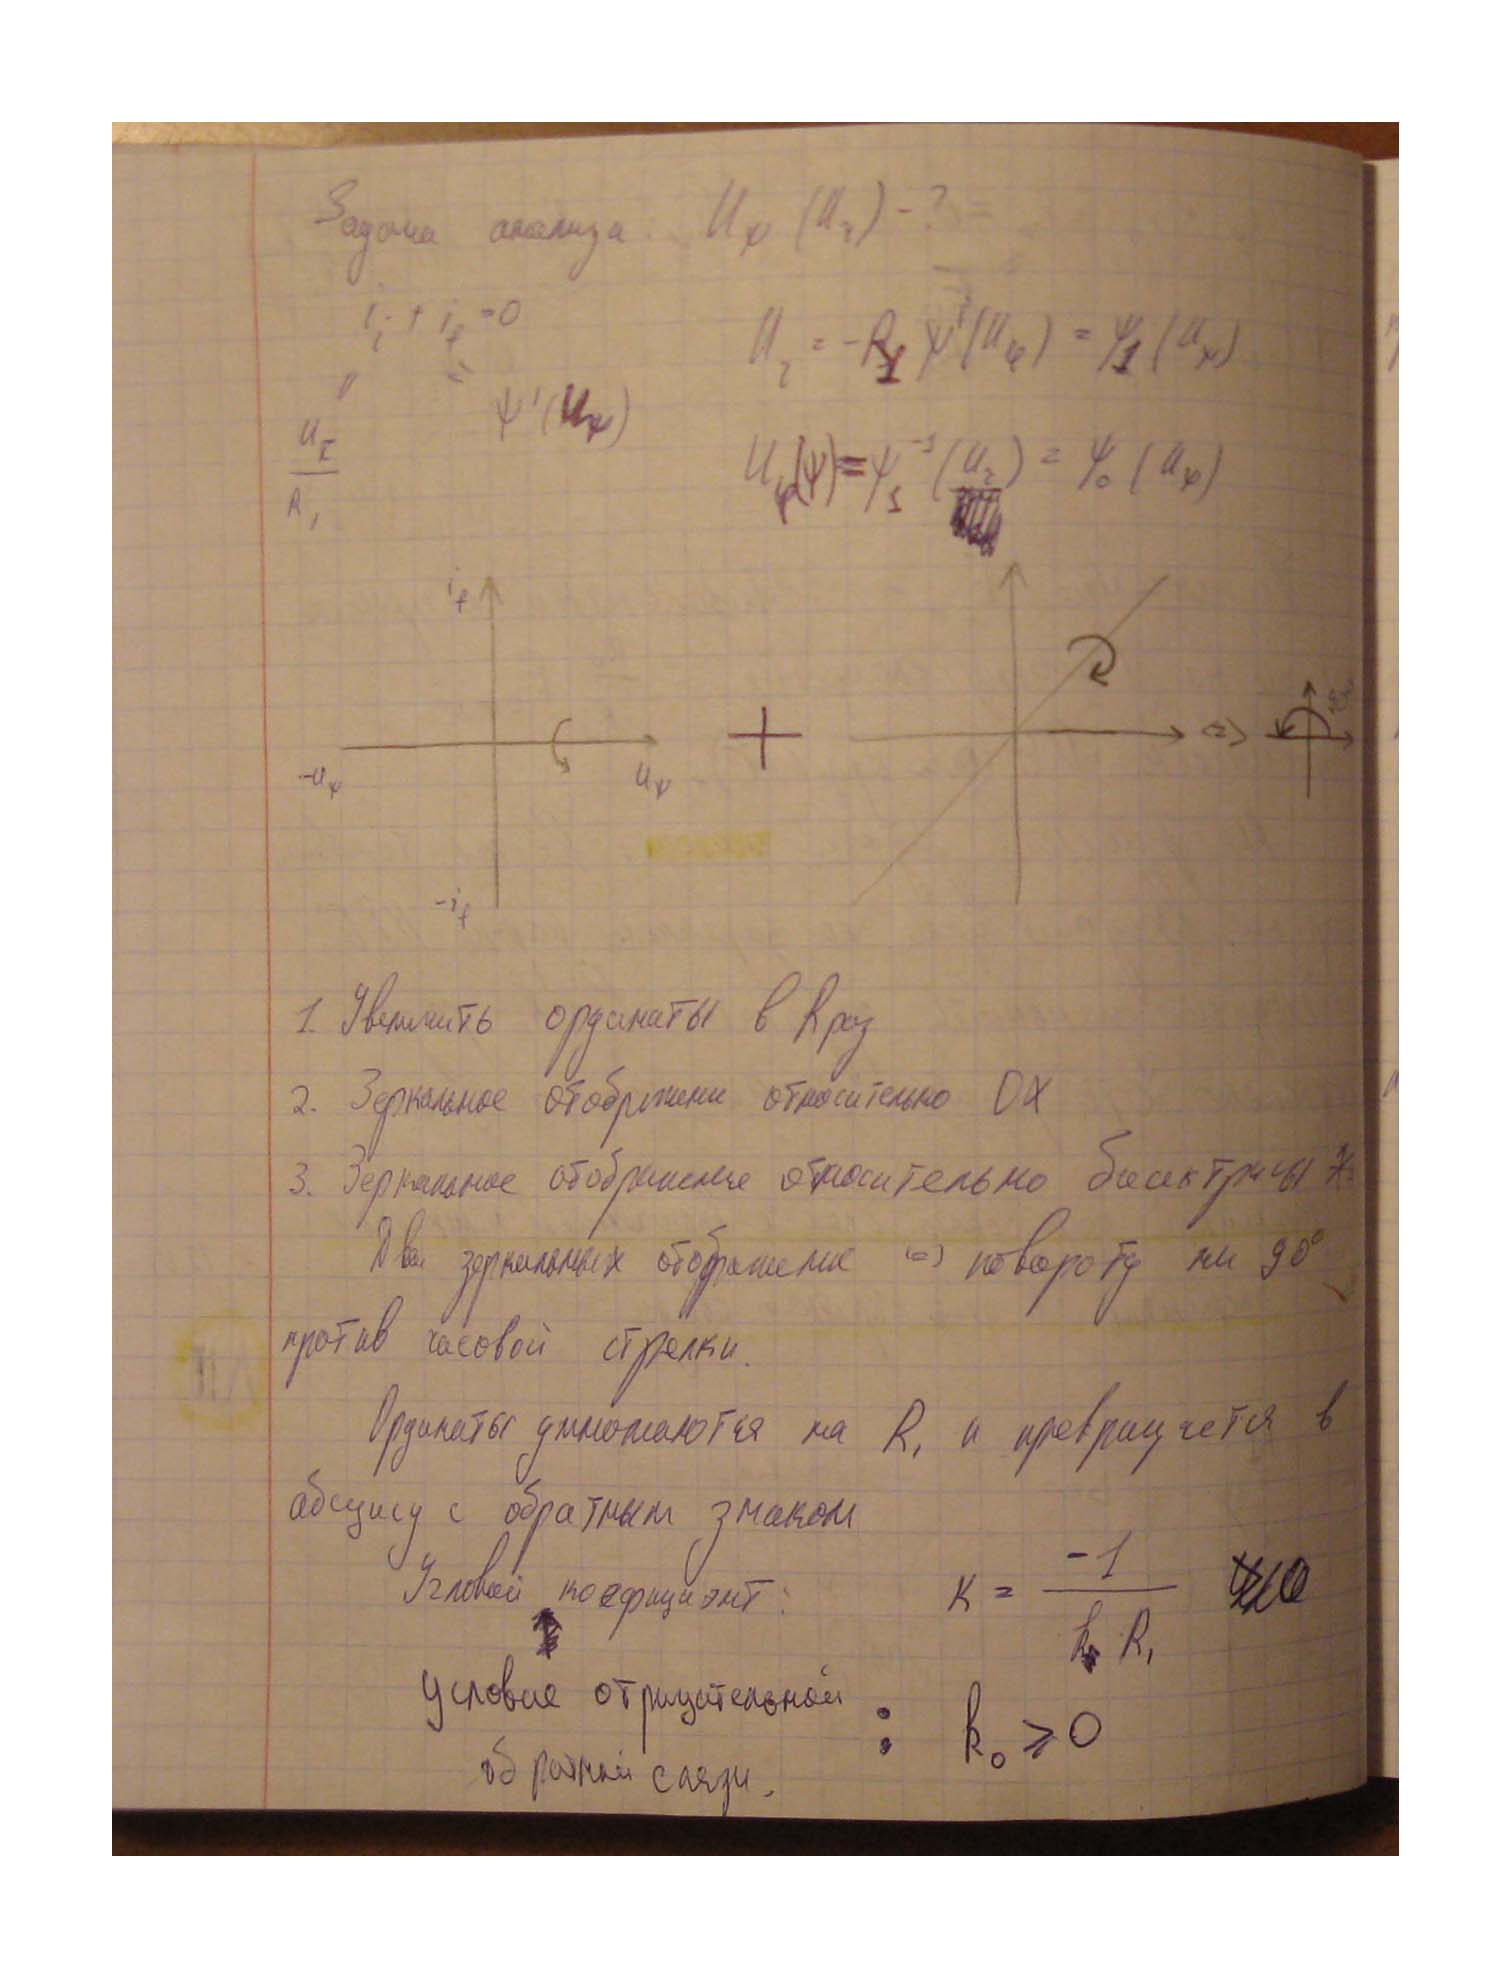 Задача анализа. U_ψ (U_г) - ?
i_i + i_f = 0
U_г = -R_1 ψ'(U_ψ) = ψ_1 (U_ψ)
" =
U_Г / R_1
ψ'(U_ψ)
U_ψ(ψ) = ψ_1^{-1} (U_г) = ψ_0 (U_ψ)
i_f
-U_ψ U_ψ + <=>
-i_f
1. Увеличить ординаты в R раз
2. Зеркальное отображени относительно OX
3. Зеркальное отображение относительно биссектрисы
Два зеркальных отображение <=> повороту на 90°
против часовой стрелки.
Ординаты умножаются на R_1 и превращается в
абсцису с обратным знаком
Угловой коефициэнт: K = -1 / R_1
Условие отрицательной
обратной связи. : k_0 ⩾ 0